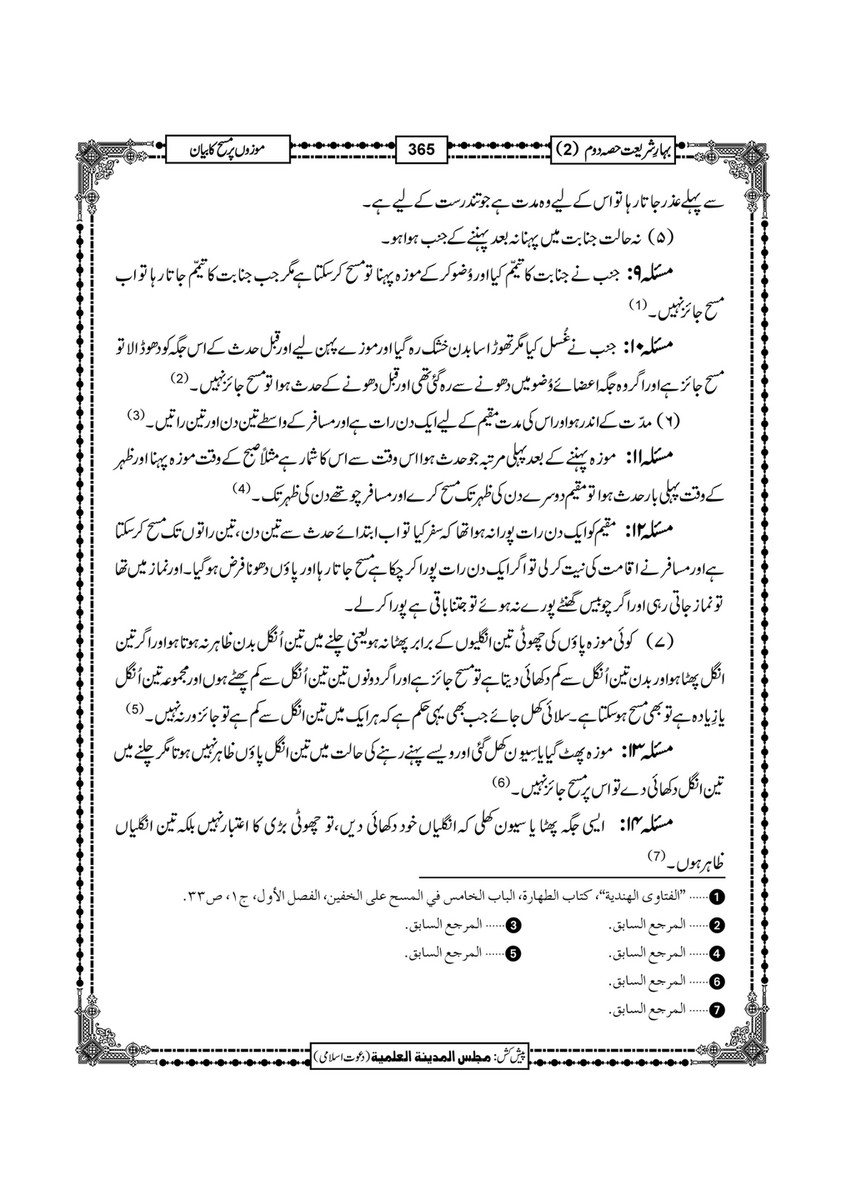 بہارِ شریعت حصہ دوم (2)
365
موزوں پر مسح کا بیان
سے پہلے عذر جاتا رہا تو اس کے لیے وہ مدت ہے جو تندرست کے لیے ہے۔
(۵) نہ حالت جنابت میں پہنا نہ بعد پہننے کے جنب ہوا ہو۔
مسئلہ ۹: جنب نے جنابت کا تیمّم کیا اور وُضو کر کے موزہ پہنا تو مسح کر سکتا ہے مگر جب جنابت کا تیمّم جاتا رہا تو اب
مسح جائز نہیں۔ (1)
مسئلہ ۱۰: جنب نے غُسل کیا مگر تھوڑا سا بدن خشک رہ گیا اور موزے پہن لیے اور قبل حدث کے اس جگہ کو دھو ڈالا تو
مسح جائز ہے اور اگر وہ جگہ اعضائے وُضو میں دھونے سے رہ گئی تھی اور قبل دھونے کے حدث ہوا تو مسح جائز نہیں۔ (2)
(۶) مدّت کے اندر ہو اور اس کی مدت مقیم کے لیے ایک دن رات ہے اور مسافر کے واسطے تین دن اور تین راتیں۔ (3)
مسئلہ ۱۱: موزہ پہننے کے بعد پہلی مرتبہ جو حدث ہوا اس وقت سے اس کا شمار ہے مثلاً صبح کے وقت موزہ پہنا اور ظہر
کے وقت پہلی بار حدث ہوا تو مقیم دوسرے دن کی ظہر تک مسح کرے اور مسافر چوتھے دن کی ظہر تک۔ (4)
مسئلہ ۱۲: مقیم کو ایک دن رات پورا نہ ہوا تھا کہ سفر کیا تو اب ابتدائے حدث سے تین دن، تین راتوں تک مسح کر سکتا
ہے اور مسافر نے اقامت کی نیت کر لی تو اگر ایک دن رات پورا کر چکا ہے مسح جاتا رہا اور پاؤں دھونا فرض ہو گیا۔ اور نماز میں تھا
تو نماز جاتی رہی اور اگر چوبیس گھنٹے پورے نہ ہوئے تو جتنا باقی ہے پورا کر لے۔
(۷) کوئی موزہ پاؤں کی چھوٹی تین انگلیوں کے برابر پھٹا نہ ہو یعنی چلنے میں تین اُنگل بدن ظاہر نہ ہوتا ہو اور اگر تین
انگل پھٹا ہو اور بدن تین اُنگل سے کم دکھائی دیتا ہے تو مسح جائز ہے اور اگر دونوں تین تین اُنگل سے کم پھٹے ہوں اور مجموعہ تین اُنگل
یا زِیادہ ہے تو بھی مسح ہو سکتا ہے۔ سلائی کھل جائے جب بھی یہی حکم ہے کہ ہر ایک میں تین انگل سے کم ہے تو جائز ورنہ نہیں۔ (5)
مسئلہ ۱۳: موزہ پھٹ گیا یا سِیون کھل گئی اور ویسے پہنے رہنے کی حالت میں تین انگل پاؤں ظاہر نہیں ہوتا مگر چلنے میں
تین انگل دکھائی دے تو اس پر مسح جائز نہیں۔ (6)
مسئلہ ۱۴: ایسی جگہ پھٹا یا سیون کھلی کہ انگلیاں خود دکھائی دیں، تو چھوٹی بڑی کا اعتبار نہیں بلکہ تین انگلیاں
ظاہر ہوں۔ (7)
1 ...... ”الفتاوى الهندية“، كتاب الطهارة، الباب الخامس في المسح على الخفين، الفصل الأول، ج١، ص٣٣.
2 ...... المرجع السابق. 3 ...... المرجع السابق.
4 ...... المرجع السابق. 5 ...... المرجع السابق.
6 ...... المرجع السابق.
7 ...... المرجع السابق.
پیش کش: مجلس المدينة العلمية (دعوت اسلامی)